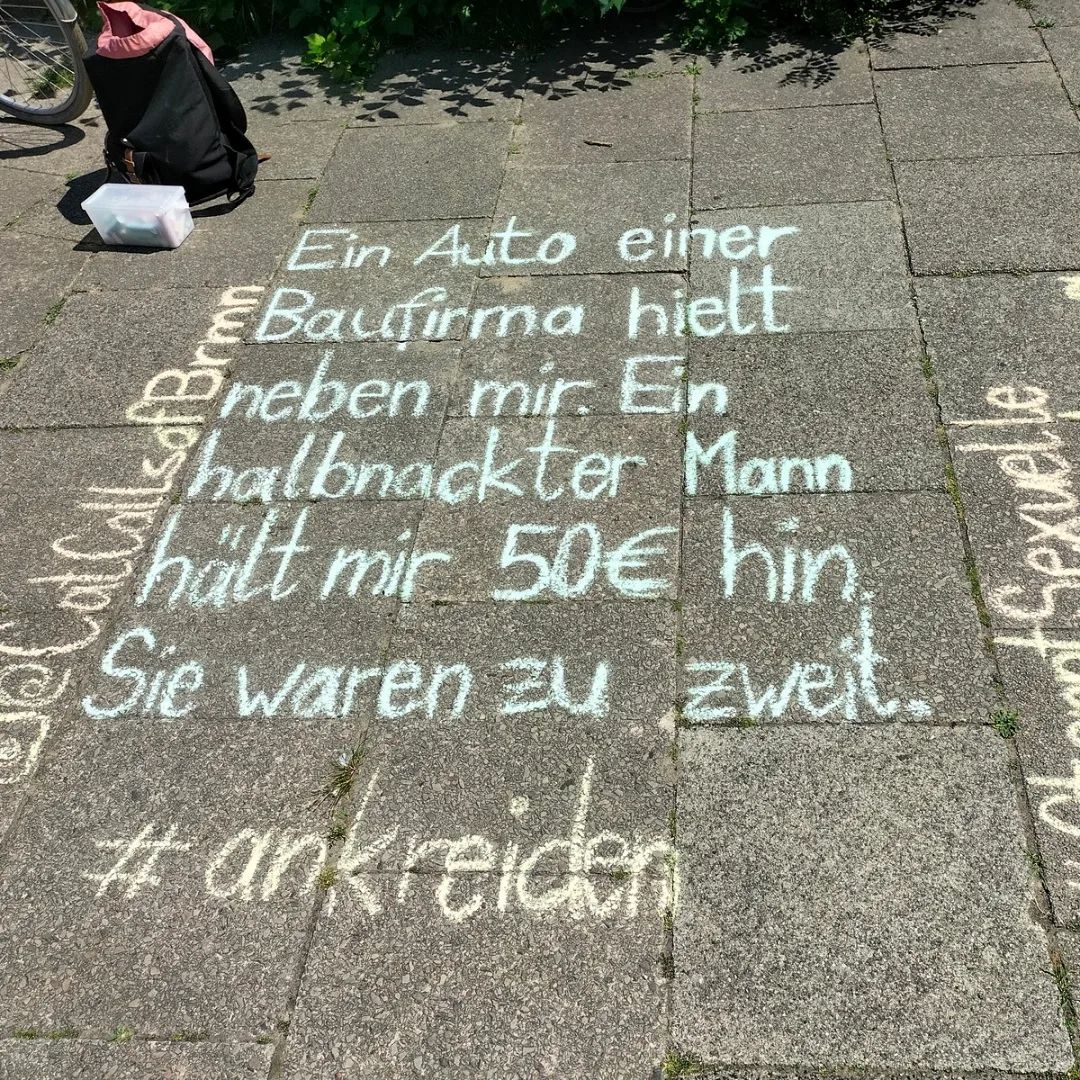 Ein Auto einer
Baufirma hielt
neben mir. Ein
halbnackter Mann
hält mir 50€ hin.
Sie waren zu zweit.
#ankreiden
@CatCallsofBrmn
Sexuelle